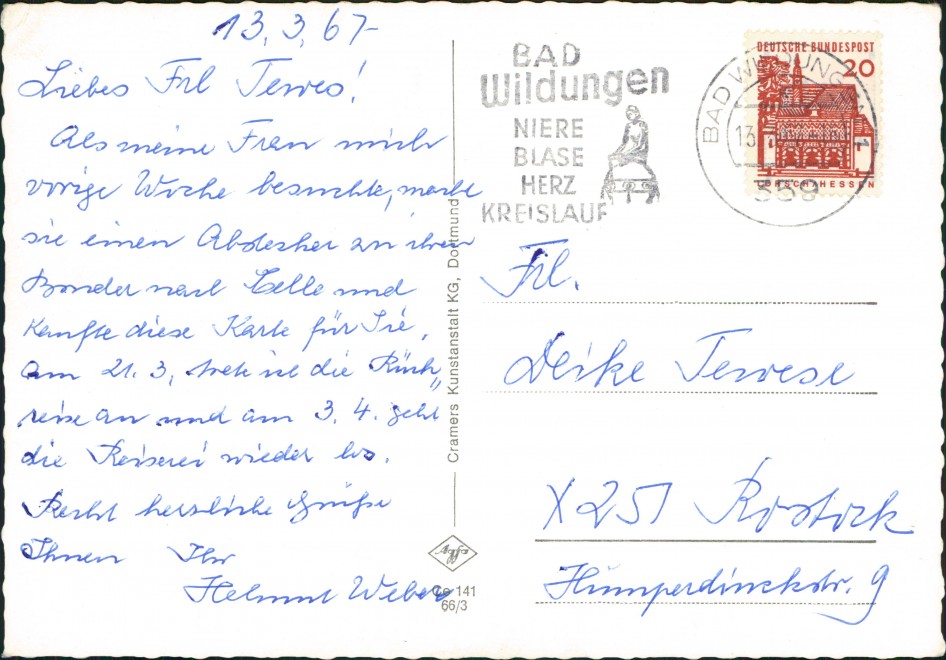 13. 3. 67-
Liebes Frl Tewes!
Als meine Frau mich
vorige Woche besuchte, machte
sie einen Abstecher zu ihrem
Bruder nach Celle und
kaufte diese Karte für Sie,
am 21. 3. trete ich die Rück„
reise an und am 3. 4. geht
die Reiserei wieder los.
Recht herzliche Grüße
Ihnen Ihr
Helmut Weber
Cramers Kunstanstalt KG, Dortmund
Agfa
Ce 141
66/3
BAD
Wildungen
NIERE
BLASE
HERZ
KREISLAUF
BAD WILDUNGEN 1
13.
359
DEUTSCHE BUNDESPOST
20
LORSCH/HESSEN
Frl.
Deike Tewese
X 251 Rostock
Humperdinckstr. 9